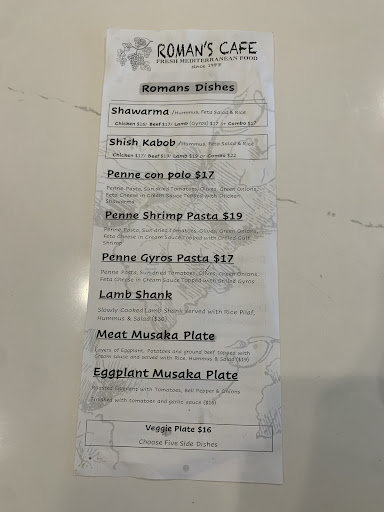 ROMAN'S CAFE
FRESH MEDITERRANEAN FOOD
Since 1999
Romans Dishes
Shawarma /Hummus, Feta Salad & Rice
Chicken $16/ Beef $17/ Lamb (Gyros) $17 or Combo $17
Shish Kabob /Hummus, Feta Salad & Rice
Chicken $17/ Beef $19/ Lamb $19 or Combo $22
Penne con polo $17
Penne Pasta, Sun dried Tomatoes, Olives, Green Onions,
Feta Cheese in Cream Sauce Topped with Chicken
Shawarma
Penne Shrimp Pasta $19
Penne, Pasta, Sun dried Tomatoes, Olives, Green Onions,
Feta Cheese in Cream Sauce Topped with Grilled Gulf
Shrimp
Penne Gyros Pasta $17
Penne Pasta, Sun dried Tomatoes, Olives, Green Onions,
Feta Cheese in Cream Sauce Topped with Grilled Gyros
Lamb Shank
Slowly Cooked Lamb Shank served with Rice Pilaf,
Hummus & Salad ($30)
Meat Musaka Plate
Layers of Eggplant, Potatoes and ground beef topped with
Cream sauce and served with Rice, Hummus & Salad ($19)
Eggplant Musaka Plate
Roasted Eggplant with Tomatoes, Bell Pepper & Onions
Finished with tomatoes and garlic sauce ($16)
Veggie Plate $16
Choose Five Side Dishes